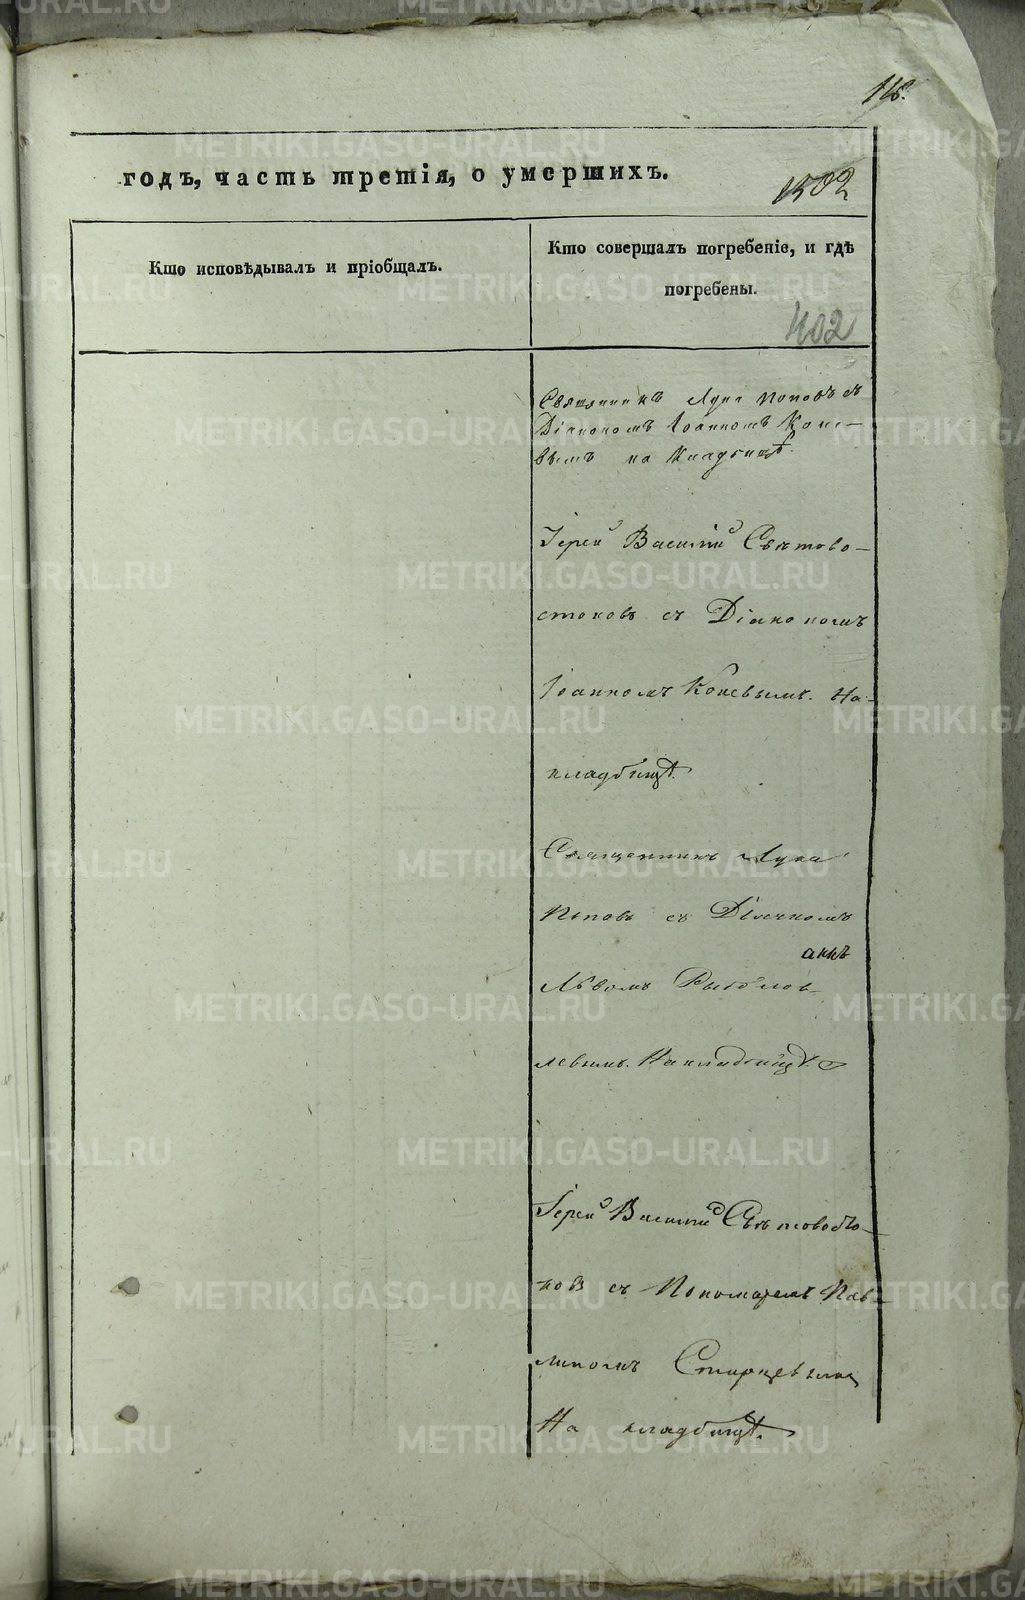 118.
годъ, часть третія, о умершихъ.
1502
Кто исповѣдывалъ и пріобщалъ.
Кто совершалъ погребеніе, и гдѣ
погребены.
402
Священникъ Лука Поповъ съ
Діакономъ Іоанномъ Коне-
вымъ на кладбищѣ.
Іерей Василій Святово-
стоковъ съ Діакономъ
Іоанномъ Коневымъ. На
кладбищѣ.
Священникъ Лука
Поповъ съ Діякономъ
Львомъ
левымъ. На кладбищѣ.
Іерей Василій
ковъ съ Пономаремъ Пав-
линомъ Старцевымъ
На кладбищѣ.
METRIKI.GASO-URAL.RU